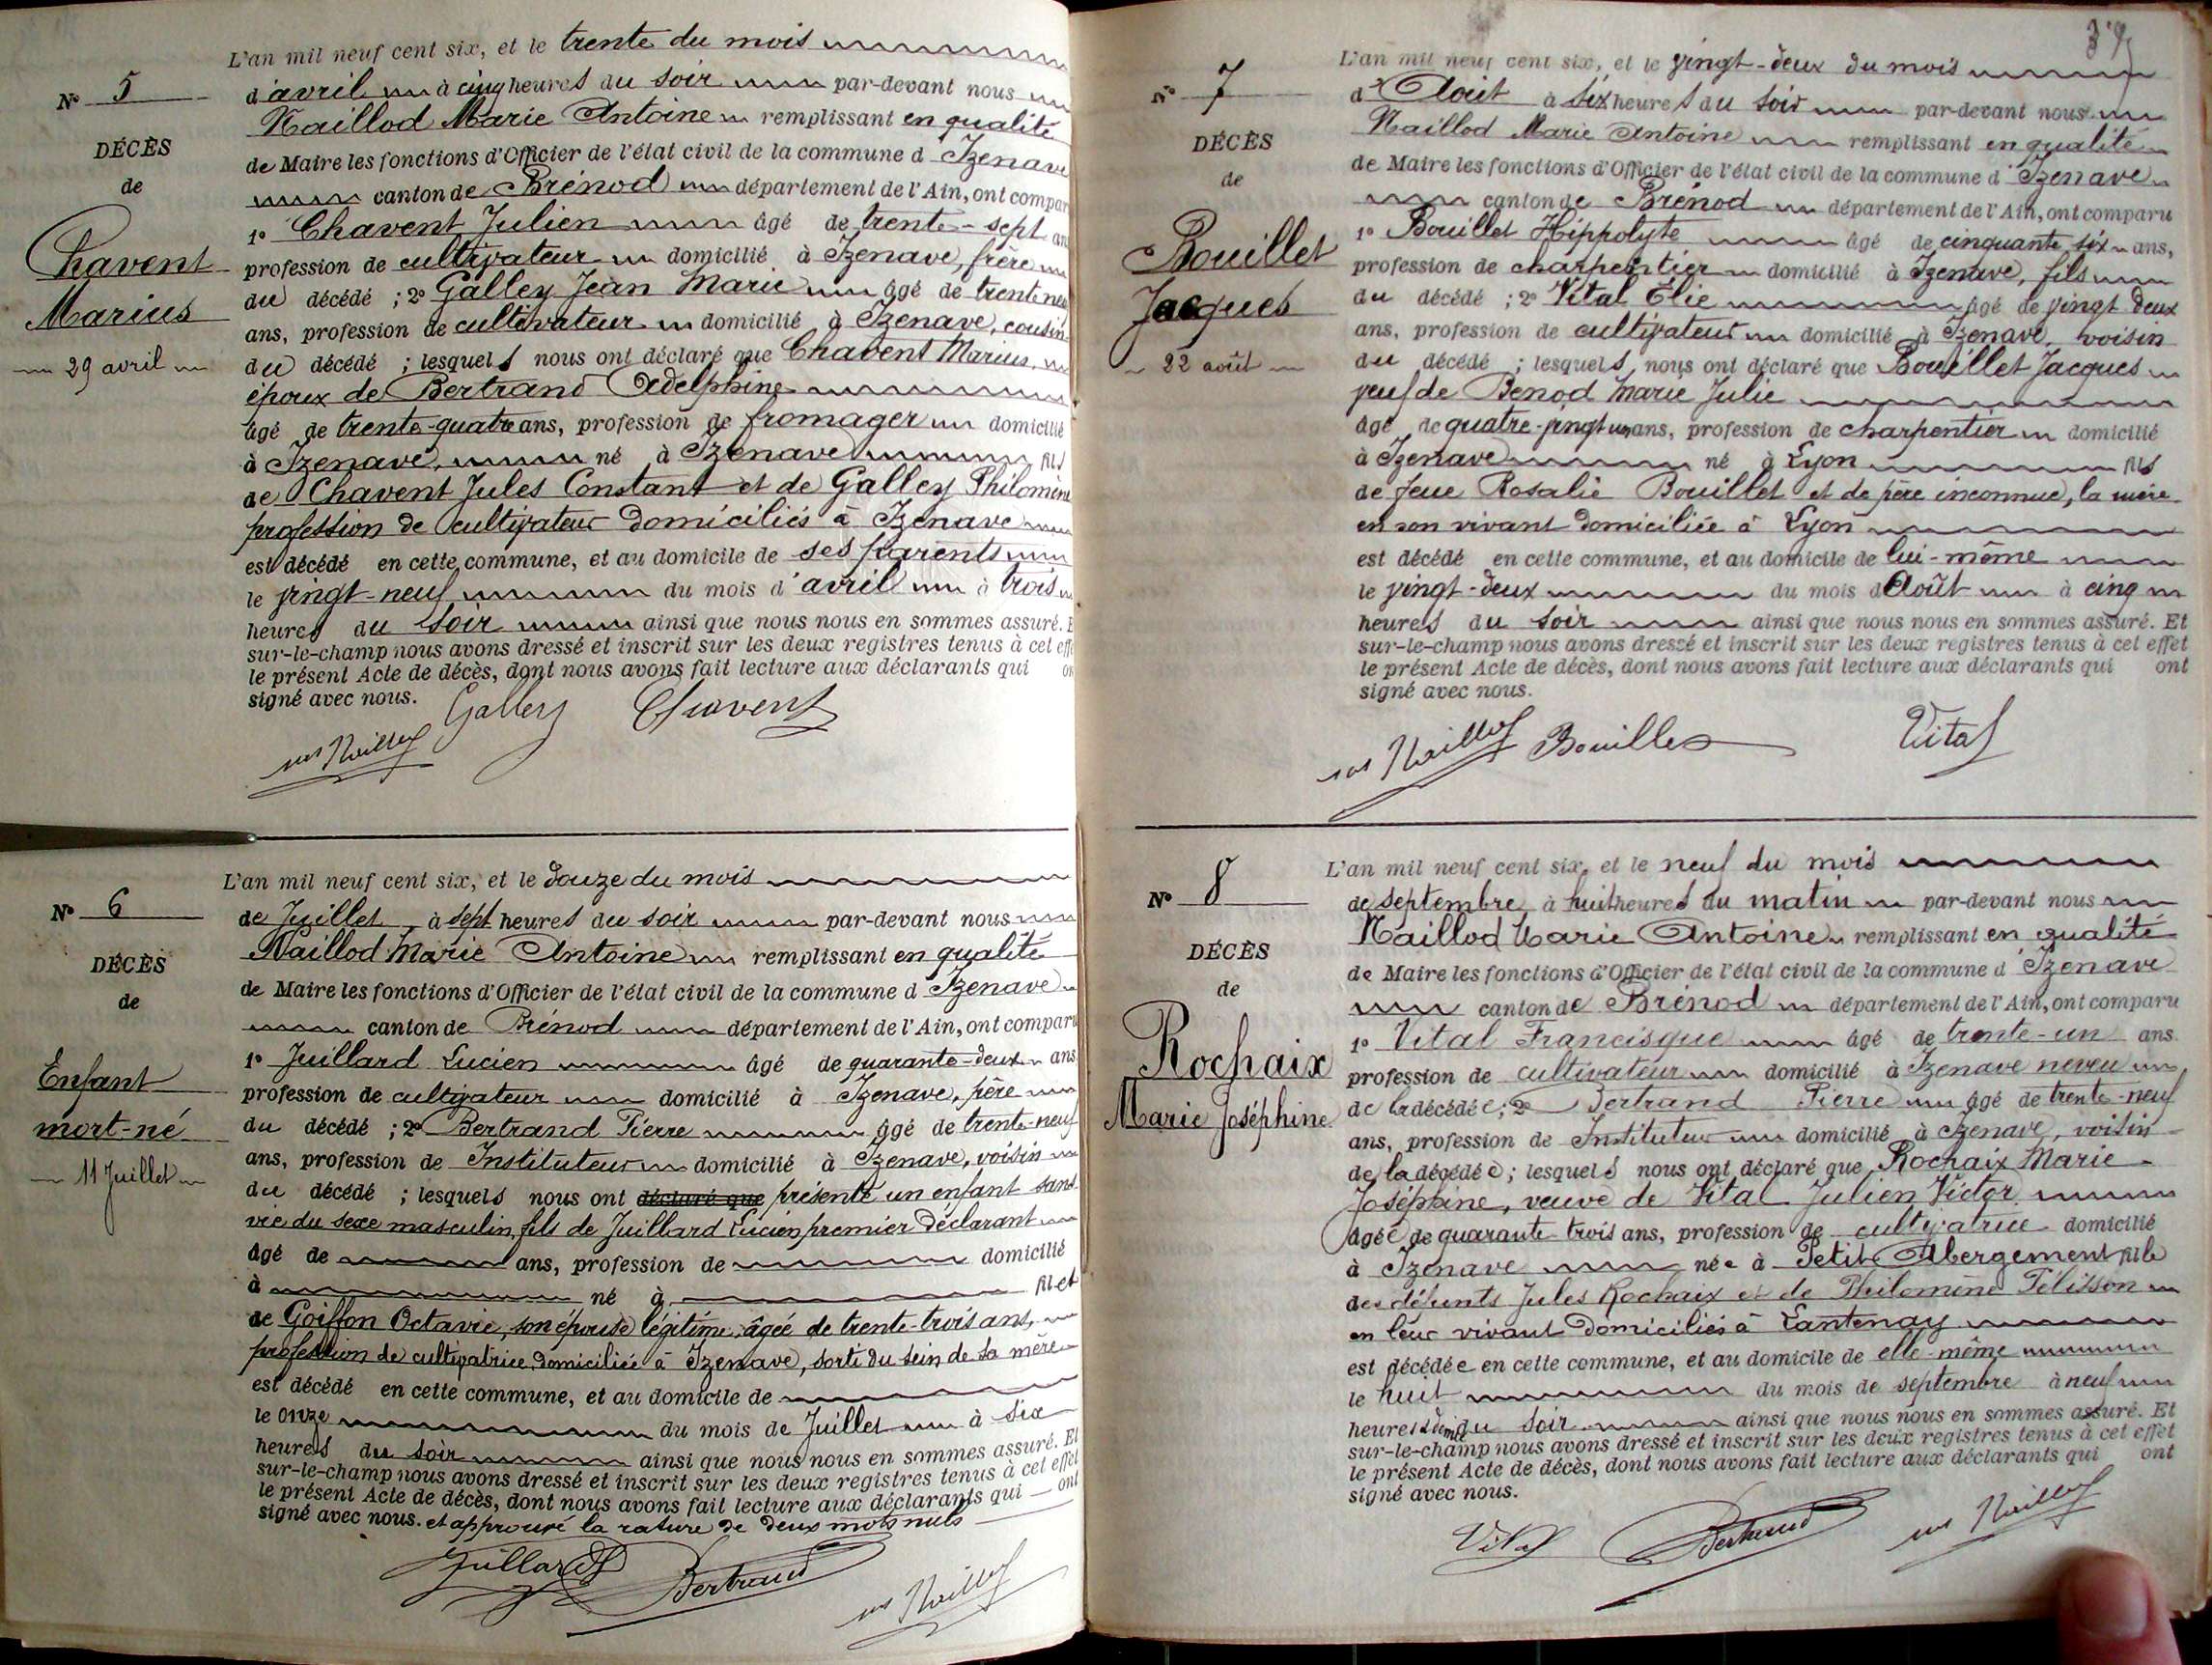 L'an mil neuf cent six, et le trente du mois
N° 5
d'avril à cinq heures du soir par-devant nous
Maillod Marie Antoine remplissant en qualité
DÉCÈS
de Maire les fonctions d'Officier de l'état civil de la commune d'Izenave
de
canton de Brénod département de l'Ain, ont compar
1° Chavent Julien âgé de trente-sept an
Chavent
profession de cultivateur domicilié à Izenave, frère
du décédé ; 2° Galley Jean Marie âgé de trente neuf
Marius
ans, profession de cultivateur domicilié à Izenave, cousin
29 avril
du décédé ; lesquels nous ont déclaré que Chavent Marius,
époux de Bertrand Adelphine
âgé de trente-quatre ans, profession de fromager domicilié
à Izenave, né à Izenave fils
de Chavent Jules Constant et de Galley Philomène
profession de cultivateur domiciliés à Izenave
est décédé en cette commune, et au domicile de ses parents
le vingt-neuf du mois d'avril à trois
heures du soir ainsi que nous nous en sommes assuré. E
sur-le-champ nous avons dressé et inscrit sur les deux registres tenus à cet effe
le présent Acte de décès, dont nous avons fait lecture aux déclarants qui on
signé avec nous.
Galley Chavent
L'an mil neuf cent six, et le douze du mois
N° 6
de Juillet à sept heures du soir par-devant nous
Maillod Marie Antoine remplissant en qualité
DÉCÈS
de Maire les fonctions d'Officier de l'état civil de la commune d Izenave
de
canton de Brénod département de l'Ain, ont comparu
1° Juillard Lucien âgé de quarante-deux ans
Enfant
profession de cultivateur domicilié à Izenave, père
mort-né
du décédé ; 2° Bertrand Pierre âgé de trente-neuf
ans, profession de Instituteur domicilié à Izenave, voisin
11 Juillet
du décédé ; lesquels nous ont déclaré que présenté un enfant sans
vie du sexe masculin, fils de Juillard Lucien premier déclarant
âgé de ans, profession de domicilié
à né à fil et
de Goiffon Octavie, son épouse légitime, âgée de trente-trois ans,
profession de cultivatrice domiciliée à Izenave, sorti du sein de sa mère
est décédé en cette commune, et au domicile de
le onze du mois de Juillet à six
heures du soir ainsi que nous nous en sommes assuré. Et
sur-le-champ nous avons dressé et inscrit sur les deux registres tenus à cet effet
le présent Acte de décès, dont nous avons fait lecture aux déclarants qui ont
signé avec nous. et approuvé la rature de deux mots nuls
Juillard Bertrand
L'an mil neuf cent six, et le vingt-deux du mois
N° 7
d'Août à six heures du soir par-devant nous
Maillod Marie Antoine remplissant en qualité
DÉCÈS
de Maire les fonctions d'Officier de l'état civil de la commune d'Izenave
de
canton de Brénod département de l'Ain, ont comparu
1° Bouillet Hippolyte âgé de cinquante six ans,
Bouillet
profession de charpentier domicilié à Izenave, fils
Jacques
du décédé ; 2° Vital Élie âgé de vingt deux
ans, profession de cultivateur domicilié à Izenave, voisin
22 août
du décédé ; lesquels nous ont déclaré que Bouillet Jacques
veuf de Benod Marie Julie
âgé de quatre-vingt un ans, profession de charpentier domicilié
à Izenave né à Lyon fils
de feue Rosalie Bouillet et de père inconnue, la mère
en son vivant domiciliée à Lyon
est décédé en cette commune, et au domicile de lui-même
le vingt-deux du mois d'Août à cinq
heures du soir ainsi que nous nous en sommes assuré. Et
sur-le-champ nous avons dressé et inscrit sur les deux registres tenus à cet effet
le présent Acte de décès, dont nous avons fait lecture aux déclarants qui ont
signé avec nous.
Bouillet Vital
L'an mil neuf cent six, et le neuf du mois
N° 8
de septembre à huit heures du matin par-devant nous
Maillod Marie Antoine remplissant en qualité
DÉCÈS
de Maire les fonctions d'Officier de l'état civil de la commune d'Izenave
de
canton de Brénod département de l'Ain, ont comparu
1° Vital Francisque âgé de trente-un ans
Rochaix
profession de cultivateur domicilié à Izenave neveu
Marie Joséphine
de la décédée ; 2° Bertrand Pierre âgé de trente-neuf
ans, profession de Instituteur domicilié à Izenave, voisin
de la décédée ; lesquels nous ont déclaré que Rochaix Marie
Joséphine, veuve de Vital Julien Victor
âgée de quarante trois ans, profession de cultivatrice domicilié
à Izenave née à Petit Abergement fille
des défunts Jules Rochaix et de Philomène Pélisson
en leur vivant domiciliés à Lantenay
est décédée en cette commune, et au domicile de elle-même
le huit du mois de septembre à neuf
heures & demie du soir ainsi que nous nous en sommes assuré. Et
sur-le-champ nous avons dressé et inscrit sur les deux registres tenus à cet effet
le présent Acte de décès, dont nous avons fait lecture aux déclarants qui ont
signé avec nous.
Vital Bertrand